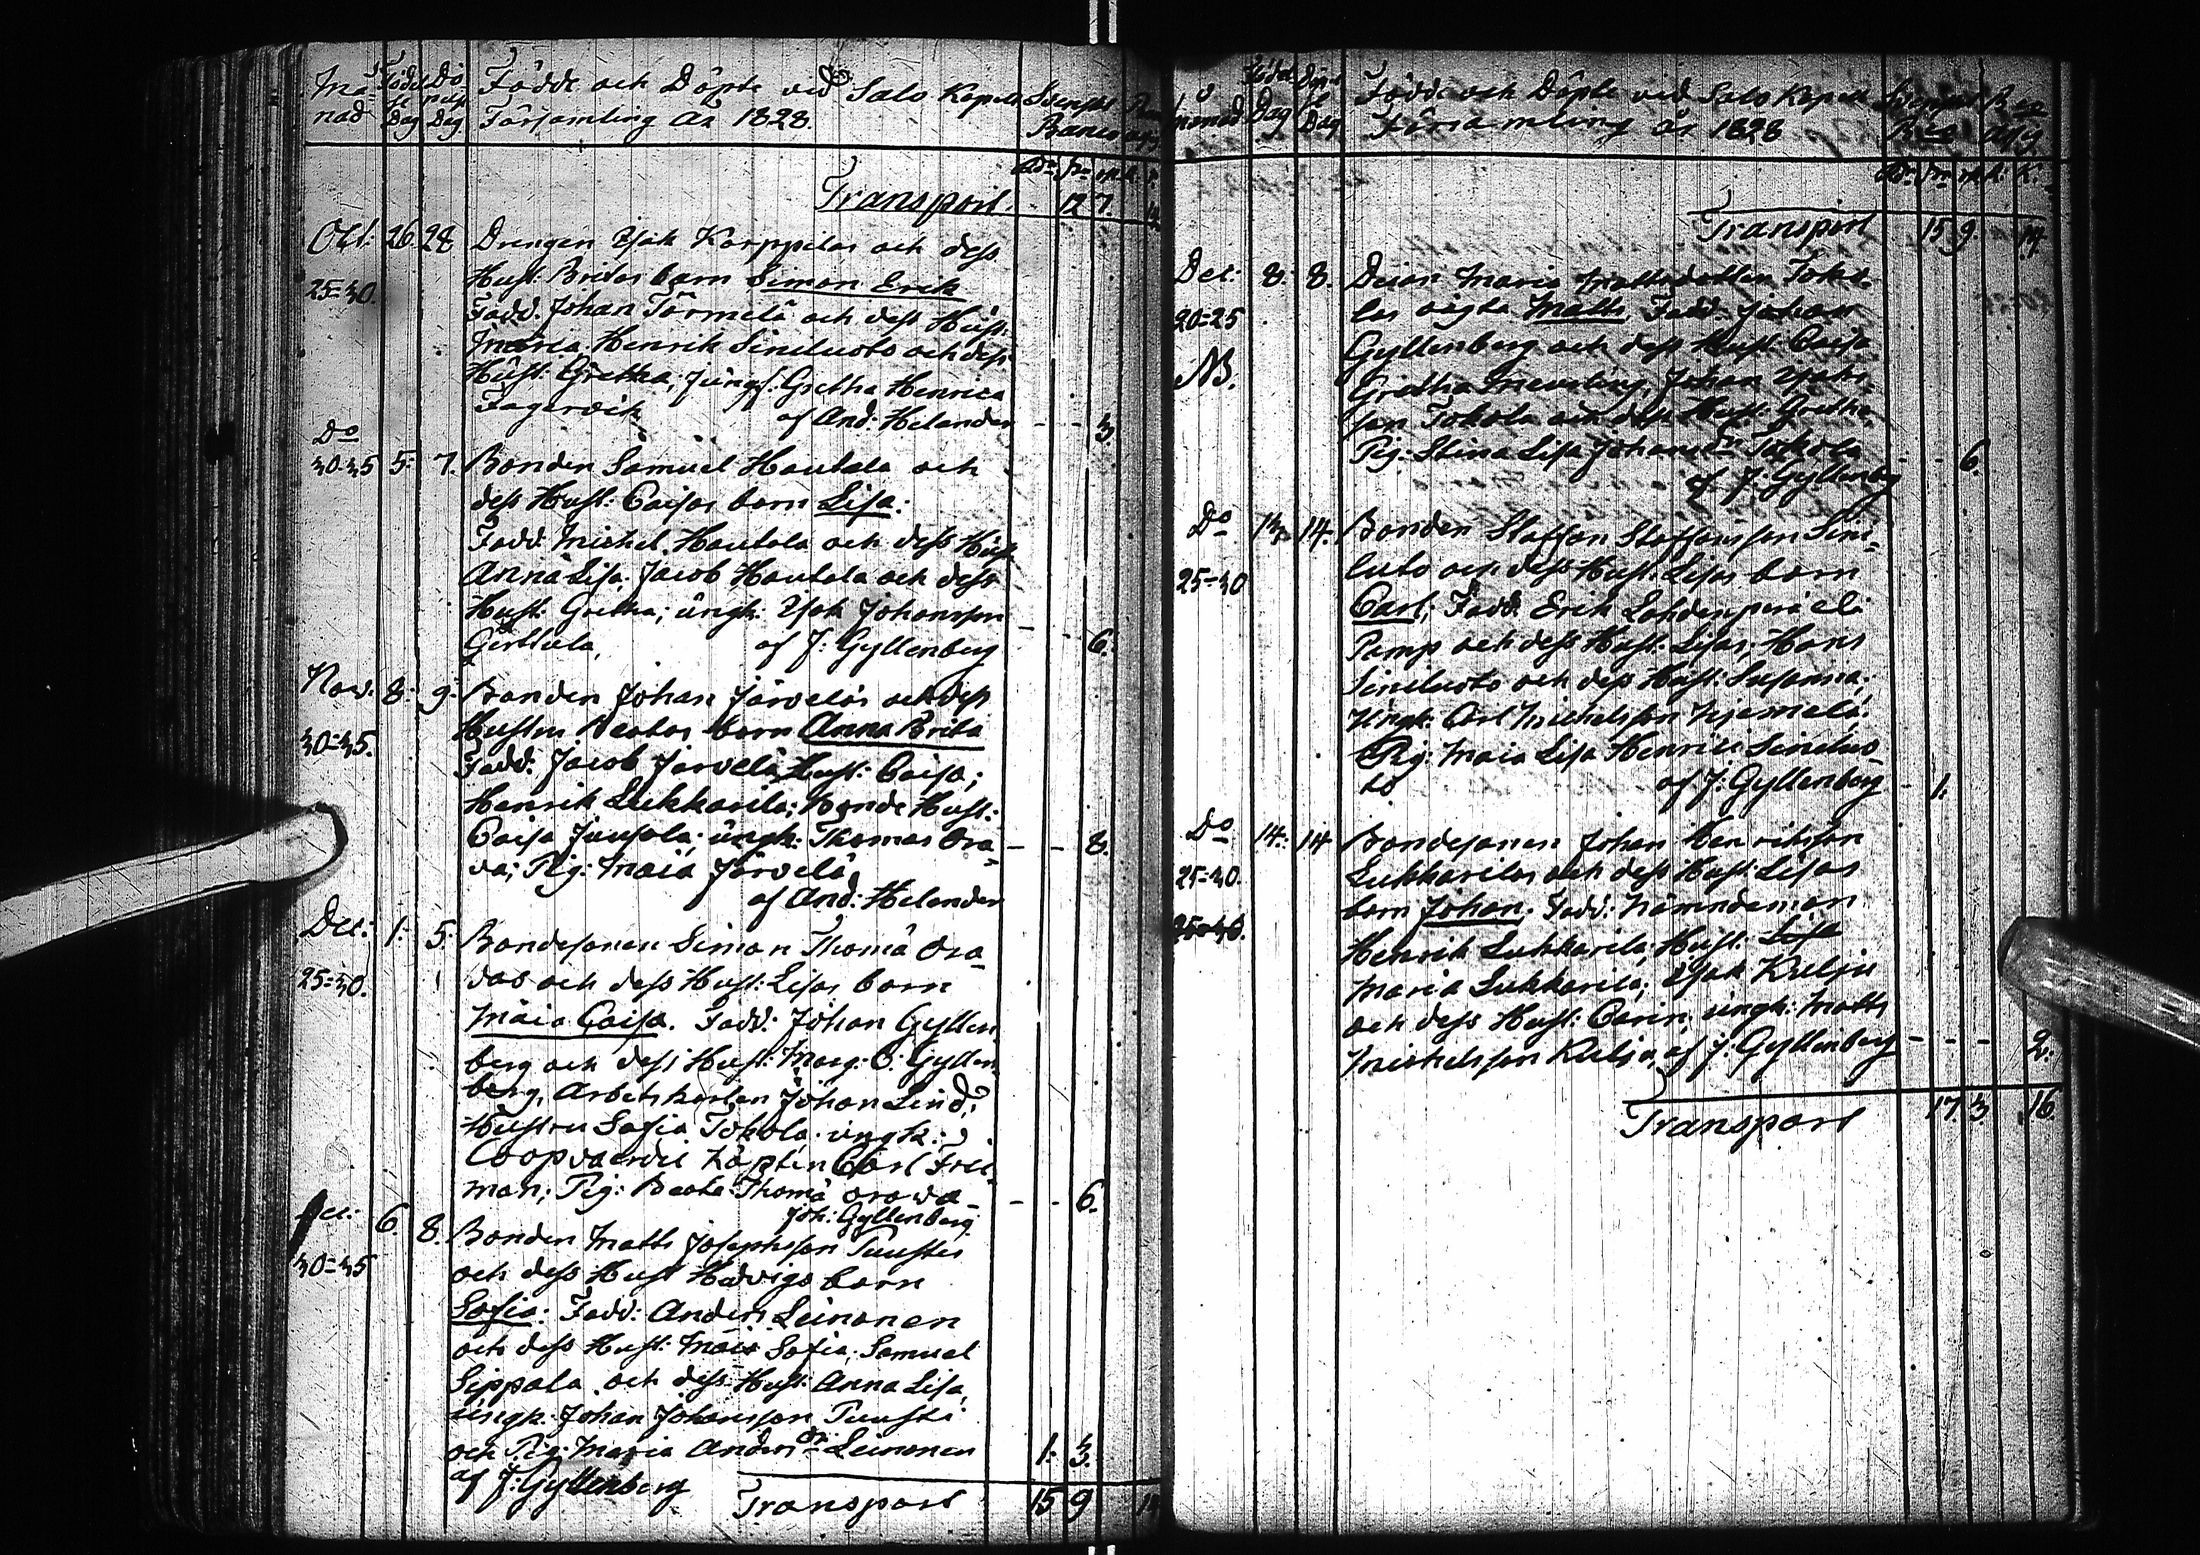 Må- Födel Dö Födde och Döpte vid Salo Kapell Svenska
nad Dag Dag Församling År 1828. Banco
Rd. sk.
Transport. 12 7.
Oct: 26. 28 Drengen Isak Karppilas och dess
Hust: Britas barn Simon Erik
25=30. Fadd. Johan Törmelä och dess Hust:
Maria, Henrik Siniluoto och dess
Hust: Gretha; jungf: Gretha Henrica
Fagervik af And: Helander - - 3.
Do
30-35 5. 7. Bonden Samuel Hautala och
dess Hust: Caisas barn Lisa:
Fadd. Michel Hautala och dess Hust
Anna Lisa; Jacob Hautala och dess
Hust: Gretha; ungk: Isak Johansson
Gertula, af J: Gyllenberg - - 6.
Nov. 8. 9. Bonden Johan Järveläs och dess
Hustru Beatas barn Anna Brita
30=35. Fadd: Jacob Järvelä, Hust: Caisa;
Henrik Lukkarila; Bonde Hust:
Caisa Juusola; ungk: Thomas Ora- - - 8.
va; Pig: Maia Järvelä
af And: Helander
Dec: 1. 5. Bondesonen Simon Thomä Ora-
vas och dess Hust: Lisas barn
25=30.
Maia Caisa. Fadd: Johan Gyllen
berg och dess Hust: Marg: C: Gyllen
berg, Arbetskarlen Johan Lind,
Hustru Sofia Tokola. ungk:
Coopvaerdie Capten Carl Frei-
man; Pig: Beata Thomä Orava - - 6.
Joh: Gyllenberg
Dec: 6. 8. Bonden Matts Josephsson Tuustis
30=35 och dess Hust Hedvigs barn
Sofia: Fadd: Anders Leinonen
och dess Hust: Maia Sofia, Samuel
Sippala och dess Hust: Anna Lisa,
ungk: Johan Johansson Tuusti
och Pig: Maria Anders dr. Leinonen 1. 3.
af J: Gyllenberg
Transport 15 9
månad Födel. Dag Döpel Dag Födde och Döpte vid Salo Kapell
Församling år 1828
Transport 15 9. 14
Dec: 8. 8. Deian Maria Mattsdotter Toko-
20=25 las oägta Matts, Fadd: Johan
Gyllenberg och dess Hust: Caisa
NB. Gretha Johan Isaks-
son Tokola och dess Hust: Gretha
Pig: Stina Lisa Johans Dr Tokola - - 6.
af J: Gyllenberg
Do 13. 14. Bonden Staffan Staffansson Sini-
25=30 luoto och dess Hust: Lisas barn
Carl, Fadd. Erik
Pamp och dess Hust: Lisa, Hans
Siniluoto och dess Hust: Susanna;
Ungk: Carl Michelsson Niemelä.
Pig: Maia Lisa Henrici Siniluo-
to af J: Gyllenberg - 1.
Do 14. 14 Bondesonen Johan Henriksson
25=30. Lukkarilas och dess Hust: Lisas
barn Johan. Fadd: Nämndeman
25=30. Henrik Lukkarila, Hust: Lisa
Maria Lukkarila; Isak Kulju
och dess Hust: Carin, ungk: Matts
Michelsson Kulju, af J: Gyllenberg - - - 2.
Transport 17. 3. 16